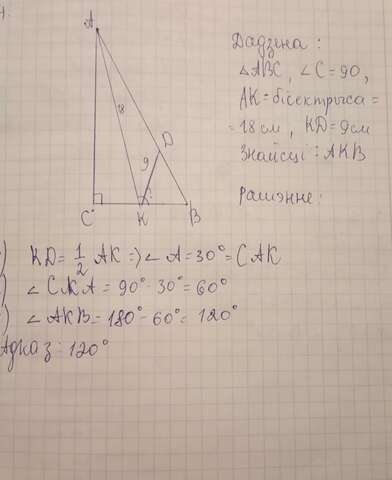 A
18
D
9
C
K
B
Дадзена :
∠ABC, ∠C = 90,
AK = бісектрыса =
= 18 см, KD = 9см
Знайсці : AKB
Рашэнне :
) KD = 1/2 AK => ∠A = 30° = CAK
) ∠CKA = 90° - 30° = 60°
) ∠AKB = 180° - 60° = 120°
Адказ : 120°